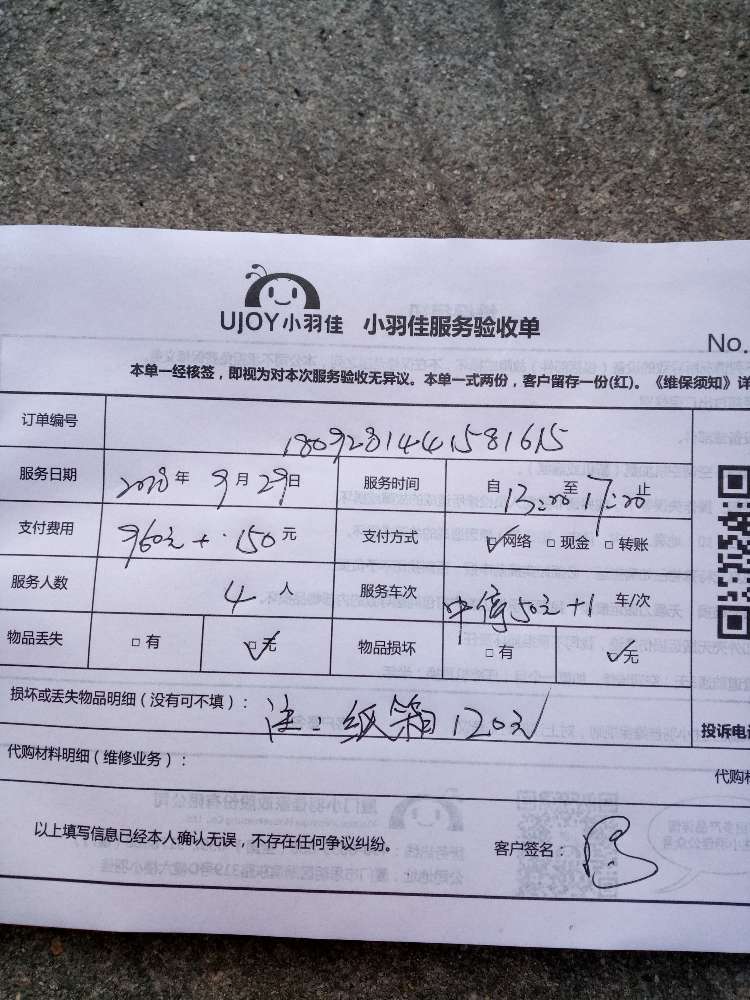 UJOY小羽佳 小羽佳服务验收单
No.
本单一经核签，即视为对本次服务验收无异议。本单一式两份，客户留存一份(红)。《维保须知》详
订单编号 1809281441581615
服务日期 2018年 9月29日 服务时间 自13:00至17:00止
支付费用 960元+150元 支付方式 ☑网络 □现金 □转账
服务人数 4人 服务车次 中停50元+1 车/次
物品丢失 □有 ☑无 物品损坏 □有 ☑无
损坏或丢失物品明细（没有可不填）： 注：纸箱120元
投诉电话
代购材料明细（维修业务）：
代购材
以上填写信息已经本人确认无误，不存在任何争议纠纷。 客户签名：